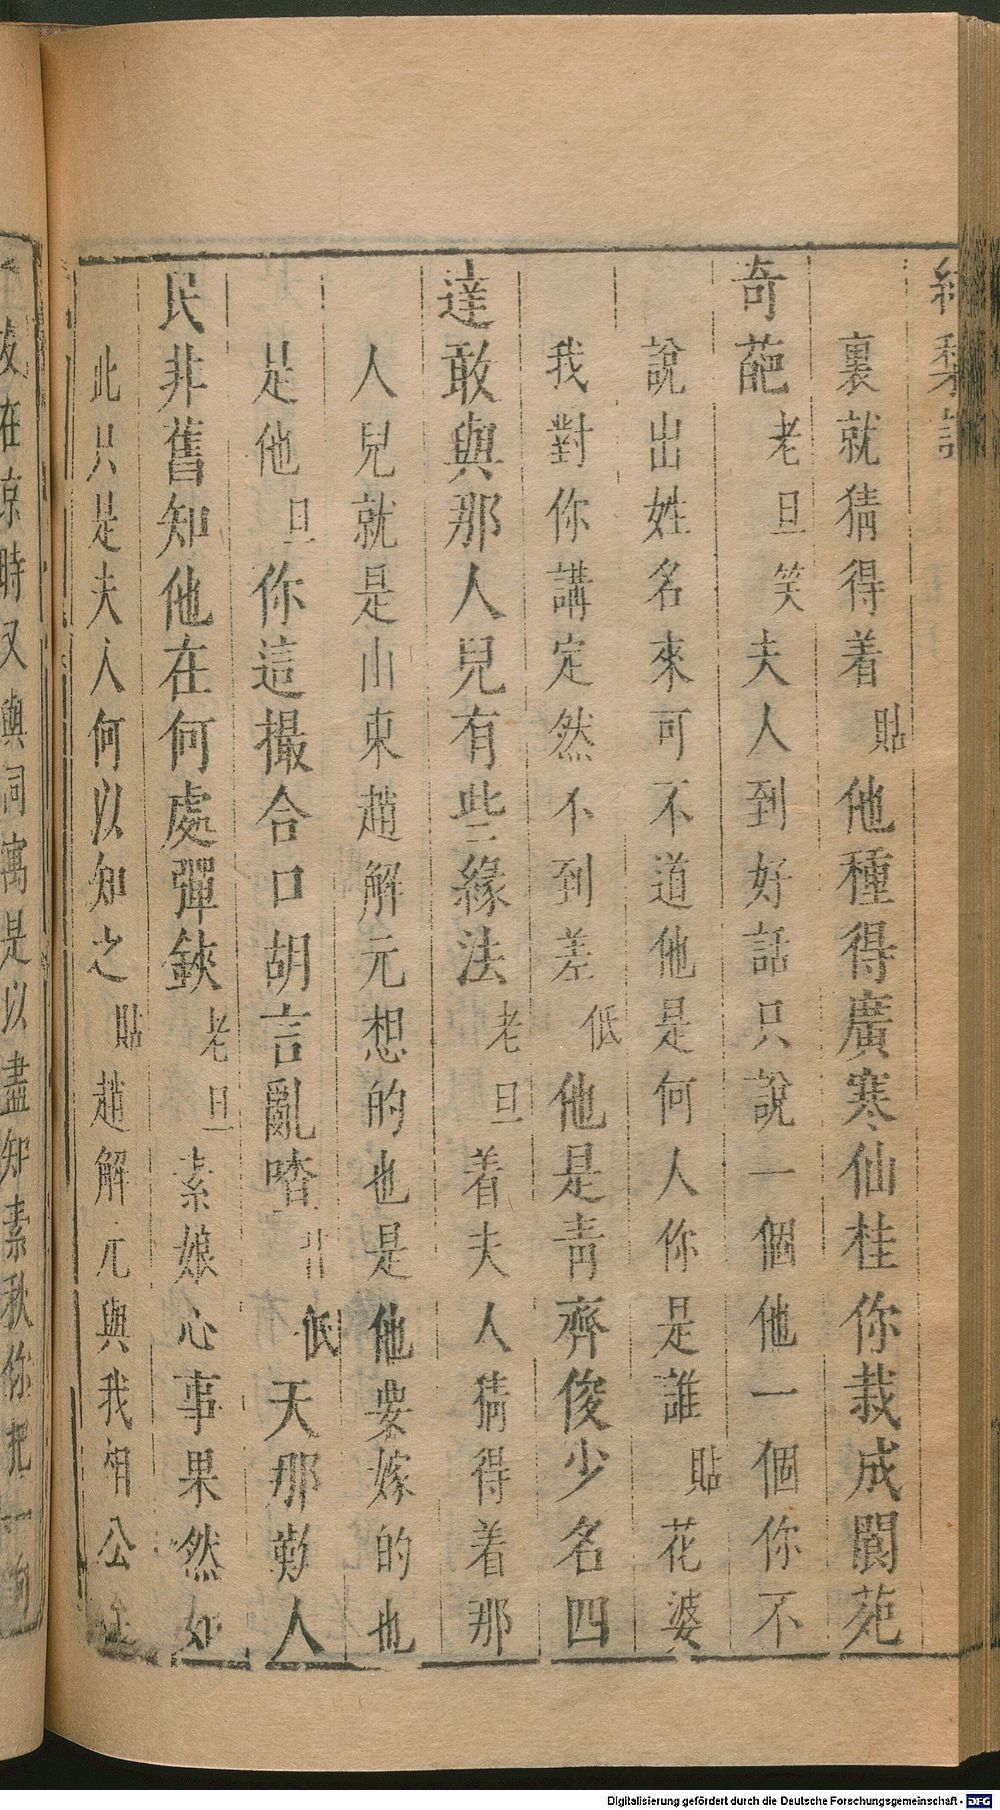 紅梨記
裏就猜得着貼他種得廣寒仙桂你栽成閬苑
奇葩老旦笑夫人到好話只說一個他一個你不
說出姓名來可不道他是何人你是誰貼花婆
我對你講定然不到差低他是青齊俊少名四
達敢與那人兒有些緣法老旦着夫人猜得着那
人兒就是山東趙解元想的也是他要嫁的也
是他旦你這撮合口胡言亂喳低天那勦人
民非舊知他在何處彈鋏老旦素娘心事果然如
此只是夫人何以知之貼趙解元與我相公
在京時又與同寓是以盡知素秋你把一向
Digitalisierung gefördert durch die Deutsche Forschungsgemeinschaft - DFG